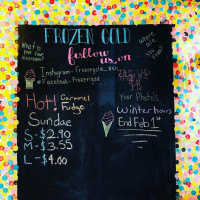 FROZEN GOLD
What is
your fave
follow
us on
where
are
you
Instagram -
Facebook - Frozengold
Hot! Caramel
Fudge
Sundae
S - $2.90
M - $3.55
L - $4.00
Your Photos
Winter hours
End Feb 1st